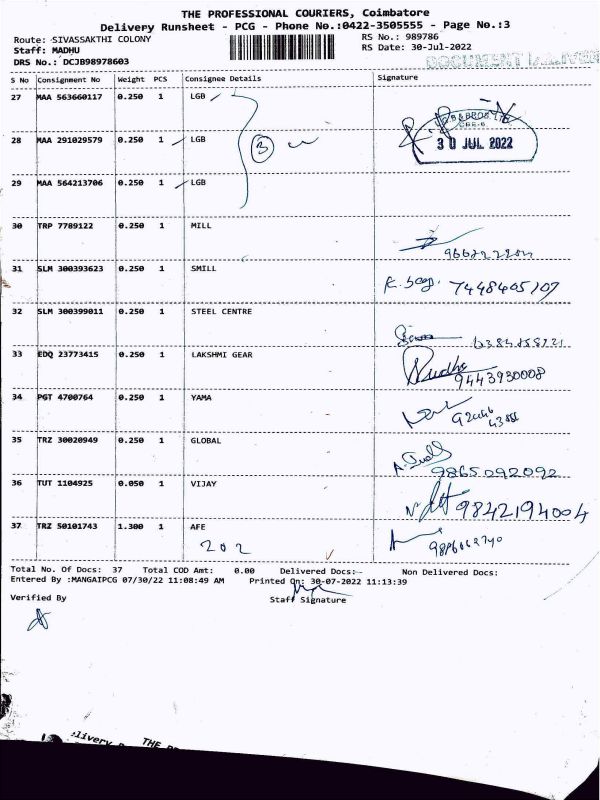 THE PROFESSIONAL COURIERS, Coimbatore
Delivery Runsheet - PCG - Phone No.:0422-3505555 - Page No.:3
Route: SIVASSAKTHI COLONY
RS No.: 989786
Staff: MADHU
RS Date: 30-Jul-2022
DRS No.: DCJB98978603
DOCUMENT DELIVER
S No Consignment No Weight PCS Consignee Details Signature
27 MAA 563660117 0.250 1 LGB
28 MAA 291029579 0.250 1 LGB 3
& BROS. LTD
CBE-6.
30 JUL 2022
29 MAA 564213706 0.250 1 LGB
30 TRP 7789122 0.250 1 MILL
31 SLM 300393623 0.250 1 SMILL 7448405107
32 SLM 300399011 0.250 1 STEEL CENTRE
33 EDQ 23773415 0.250 1 LAKSHMI GEAR 9443930008
34 PGT 4700764 0.250 1 YAMA
35 TRZ 30020949 0.250 1 GLOBAL 9865092092
36 TUT 1104925 0.050 1 VIJAY 9842194004
37 TRZ 50101743 1.300 1 AFE
202
Total No. Of Docs: 37 Total COD Amt: 0.00 Delivered Docs: Non Delivered Docs:
Entered By :MANGAIPCG 07/30/22 11:08:49 AM Printed On: 30-07-2022 11:13:39
Verified By Staff Signature
elivery
THE